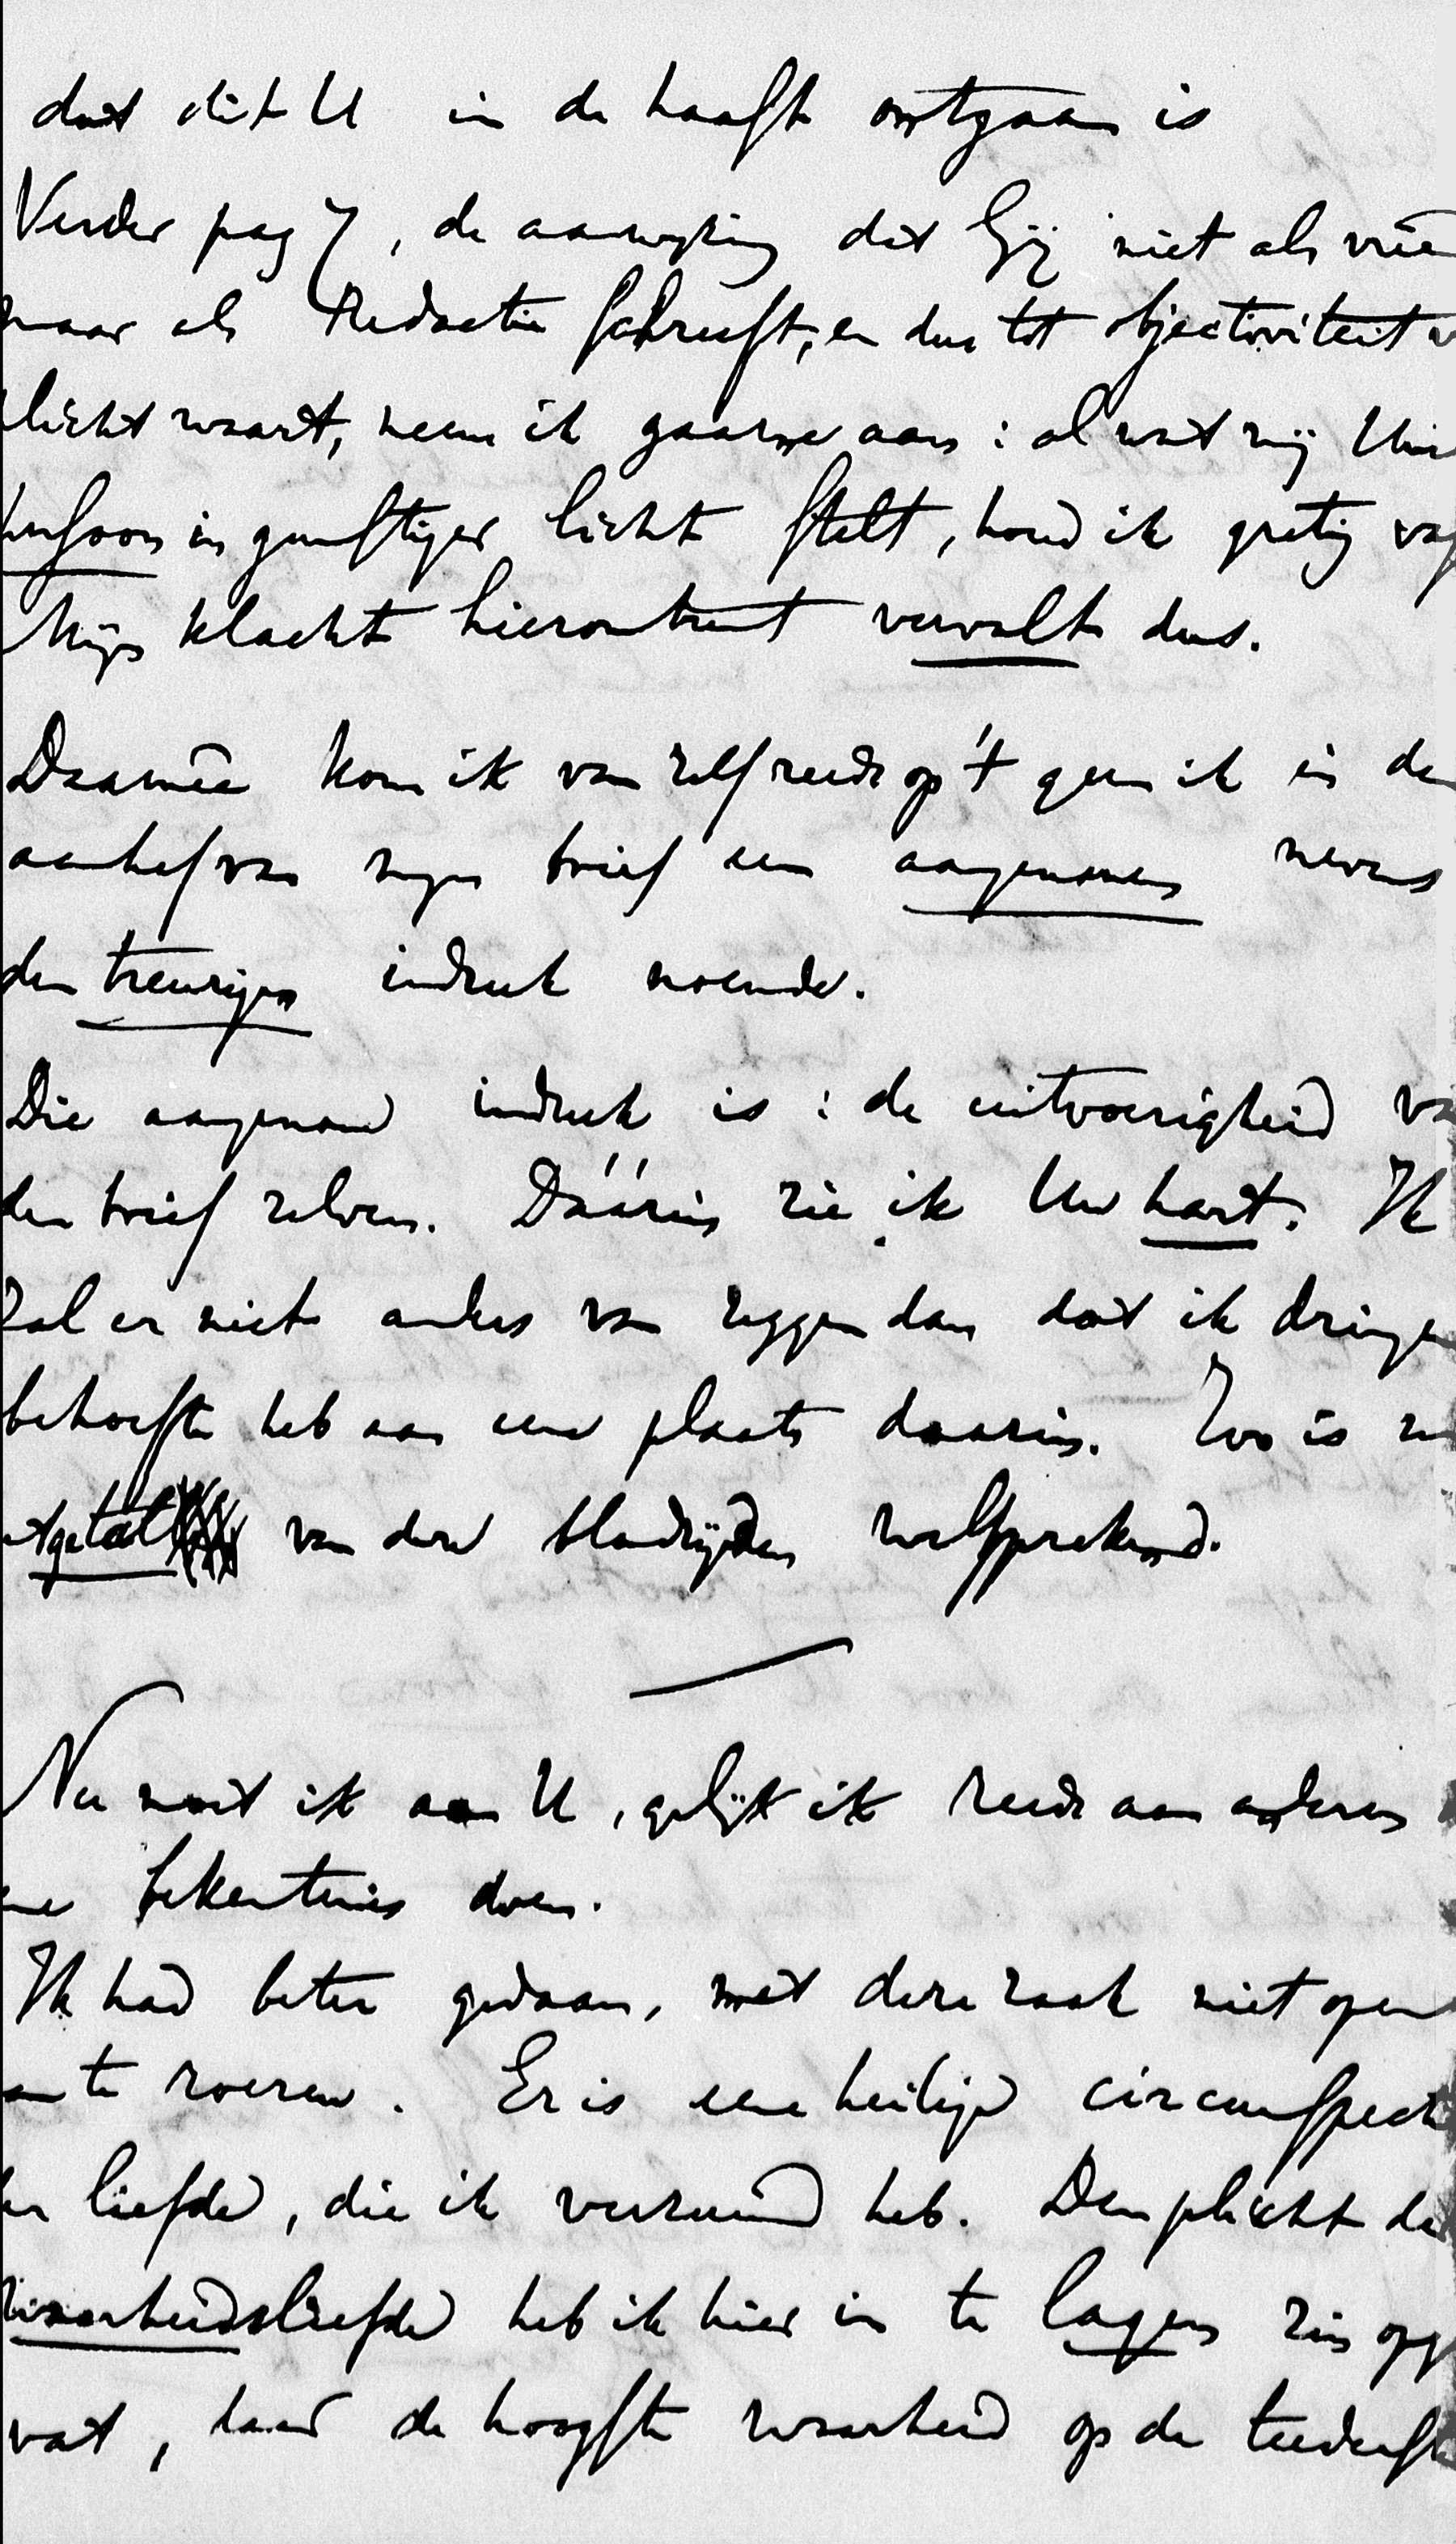 dat dit U in de haast ontgaan is
Verder pag 7, de aanwijzing dat Gij niet als vrie
maar als Redactie schreeft, en dus tot objectiviteit v
plicht waart, neem ik gaarne aan: al wat mij Uw
persoon in gunstiger licht stelt, houd ik gretig vas
Mijn klacht hieromtrent vervalt dus.
Daarmêe kom ik van zelf reeds op 't geen ik in den
aanhef van mijn brief een aangenamen nevens
den treurigen indruk noemde.
Die aangename indruk is: de uitvoerigheid va
den brief zelven. Dáárin zie ik Uw hart. Ik
zal er niets anders van zeggen dan dat ik dringen
behoefte heb aan eene plaats daarin. Zoo is m
getal van dew bladzijden welsprekend.
Nu moet ik aan U, gelijk ik reeds aan anderen
ne bekentenis doen.
Ik had beter gedaan, met deze zaak niet open
an te roeren. Er is eene heilige circumspect
er liefde, die ik verzuimd heb. Den plicht der
waarheidsliefde heb ik hier in te lagen zin opg
vat, daar de hoogste waarheid op de teederste